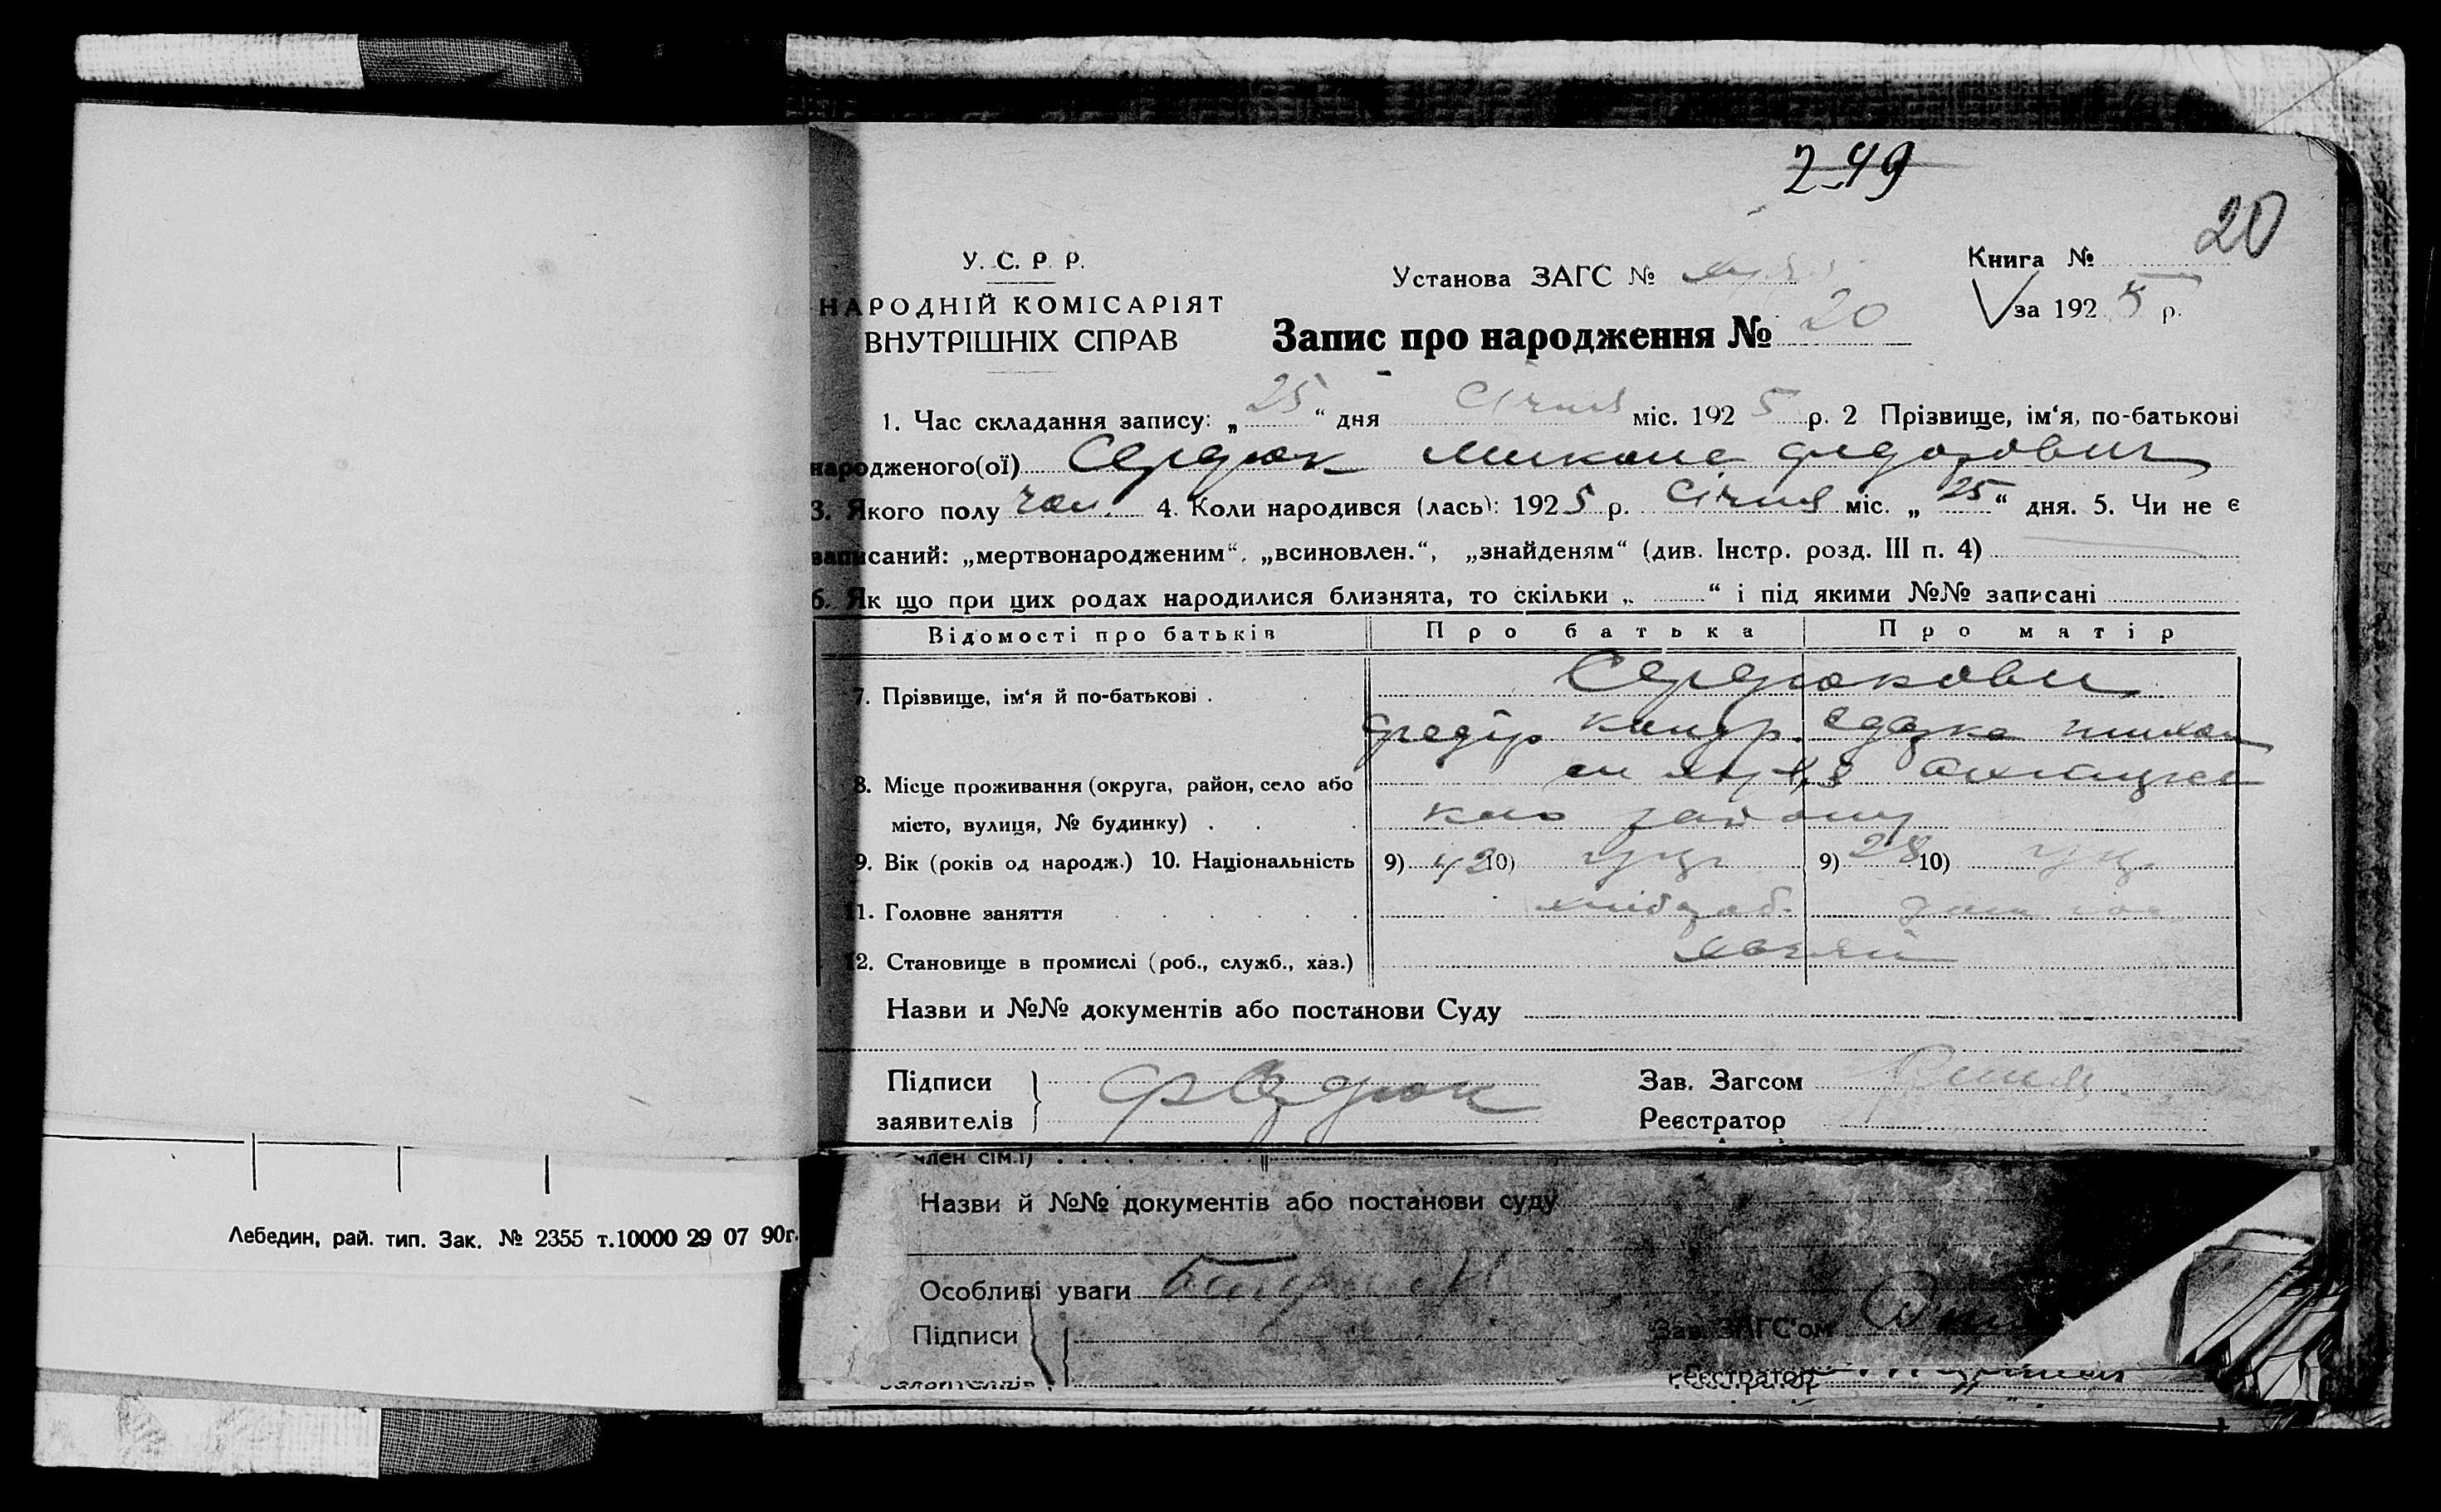 249
20
У. С. Р. Р.
НАРОДНІЙ КОМІСАРІЯТ
ВНУТРІШНІХ СПРАВ
Установа ЗАГС №
Книга №
за 1925 р.
Запис про народження № 20
1. Час складання запису: „25“ дня Січня міс. 1925 р. 2 Прізвище, ім‘я, по-батькові
народженого(ої) Середюк Микола Федорович
3. Якого полу чол. 4. Коли народився (лась): 1925 р. Січня міс. „25“ дня. 5. Чи не є
записаний: „мертвонародженим“, „всиновлен.“, „знайденям“ (див. Інстр. розд. III п. 4)
6. Як що при цих родах народилися близнята, то скільки „ “ і під якими №№ записані
Відомості про батьків Про батька Про матір
7. Прізвище, ім‘я й по-батькові . Середюкови
Федір Кіндр.
8. Місце проживання (округа, район, село або
місто, вулиця, № будинку) . . . району
9. Вік (років од народж.) 10. Національність 9) 42 10) укр 9) 28 10) укр
11. Головне заняття . . . . . хлібороб.
12. Становище в промислі (роб., служб., хаз.) хазяї
Назви и №№ документів або постанови Суду
Підписи
заявителів
Зав. Загсом
Реєстратор
член сім.ї)
Назви й №№ документів або постанови суду
Особливі уваги
Підписи
Зав. ЗАГС'ом
Реєстратор
Лебедин, рай. тип. Зак. № 2355 т.10000 29 07 90г.